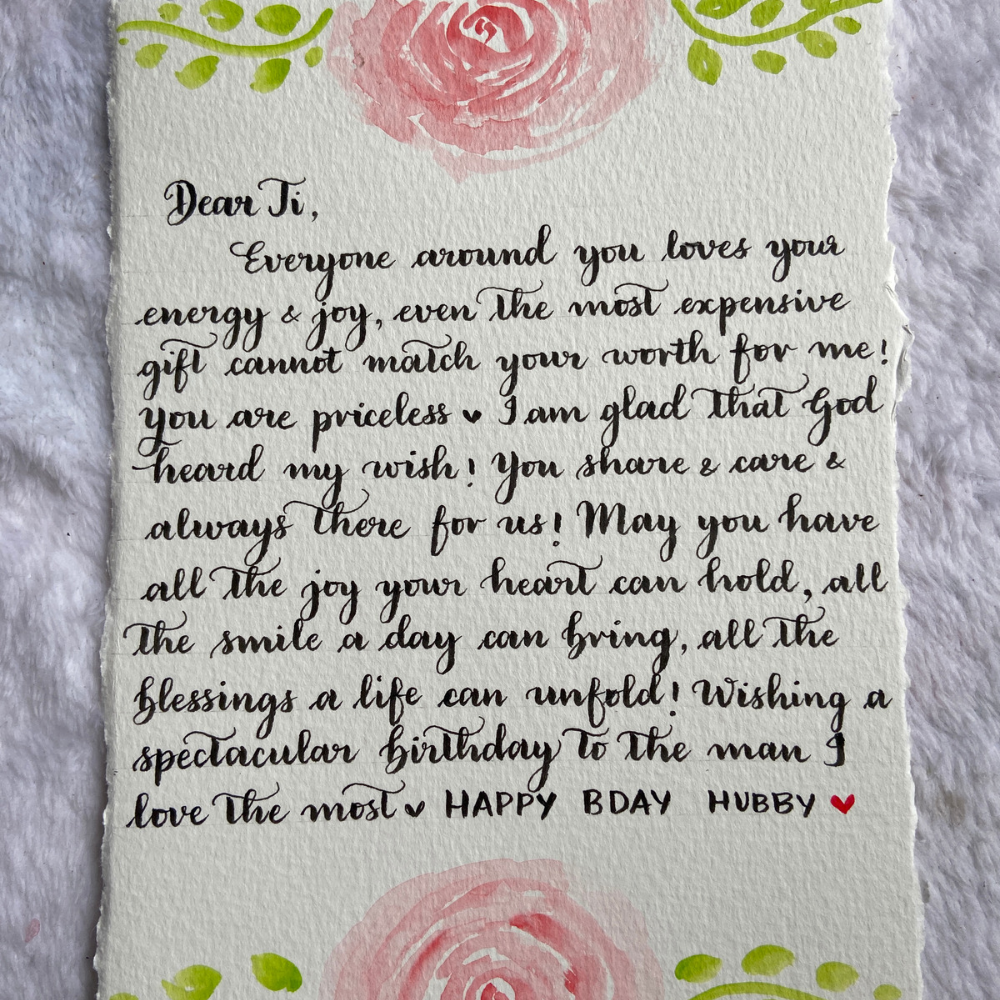 Dear Ti,
Everyone around you loves your
energy & joy, even the most expensive
gift cannot match your worth for me!
you are priceless ♥ I am glad that God
heard my wish! You share & care &
always there for us! May you have
all the joy your heart can hold, all
the smile a day can bring, all the
blessings a life can unfold! Wishing a
spectacular birthday to the man I
love the most ♥ HAPPY BDAY HUBBY ♥